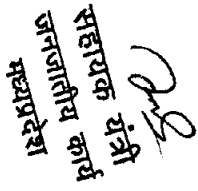 सहायक यंत्री
जनजातीय कार्य
मध्यप्रदेश